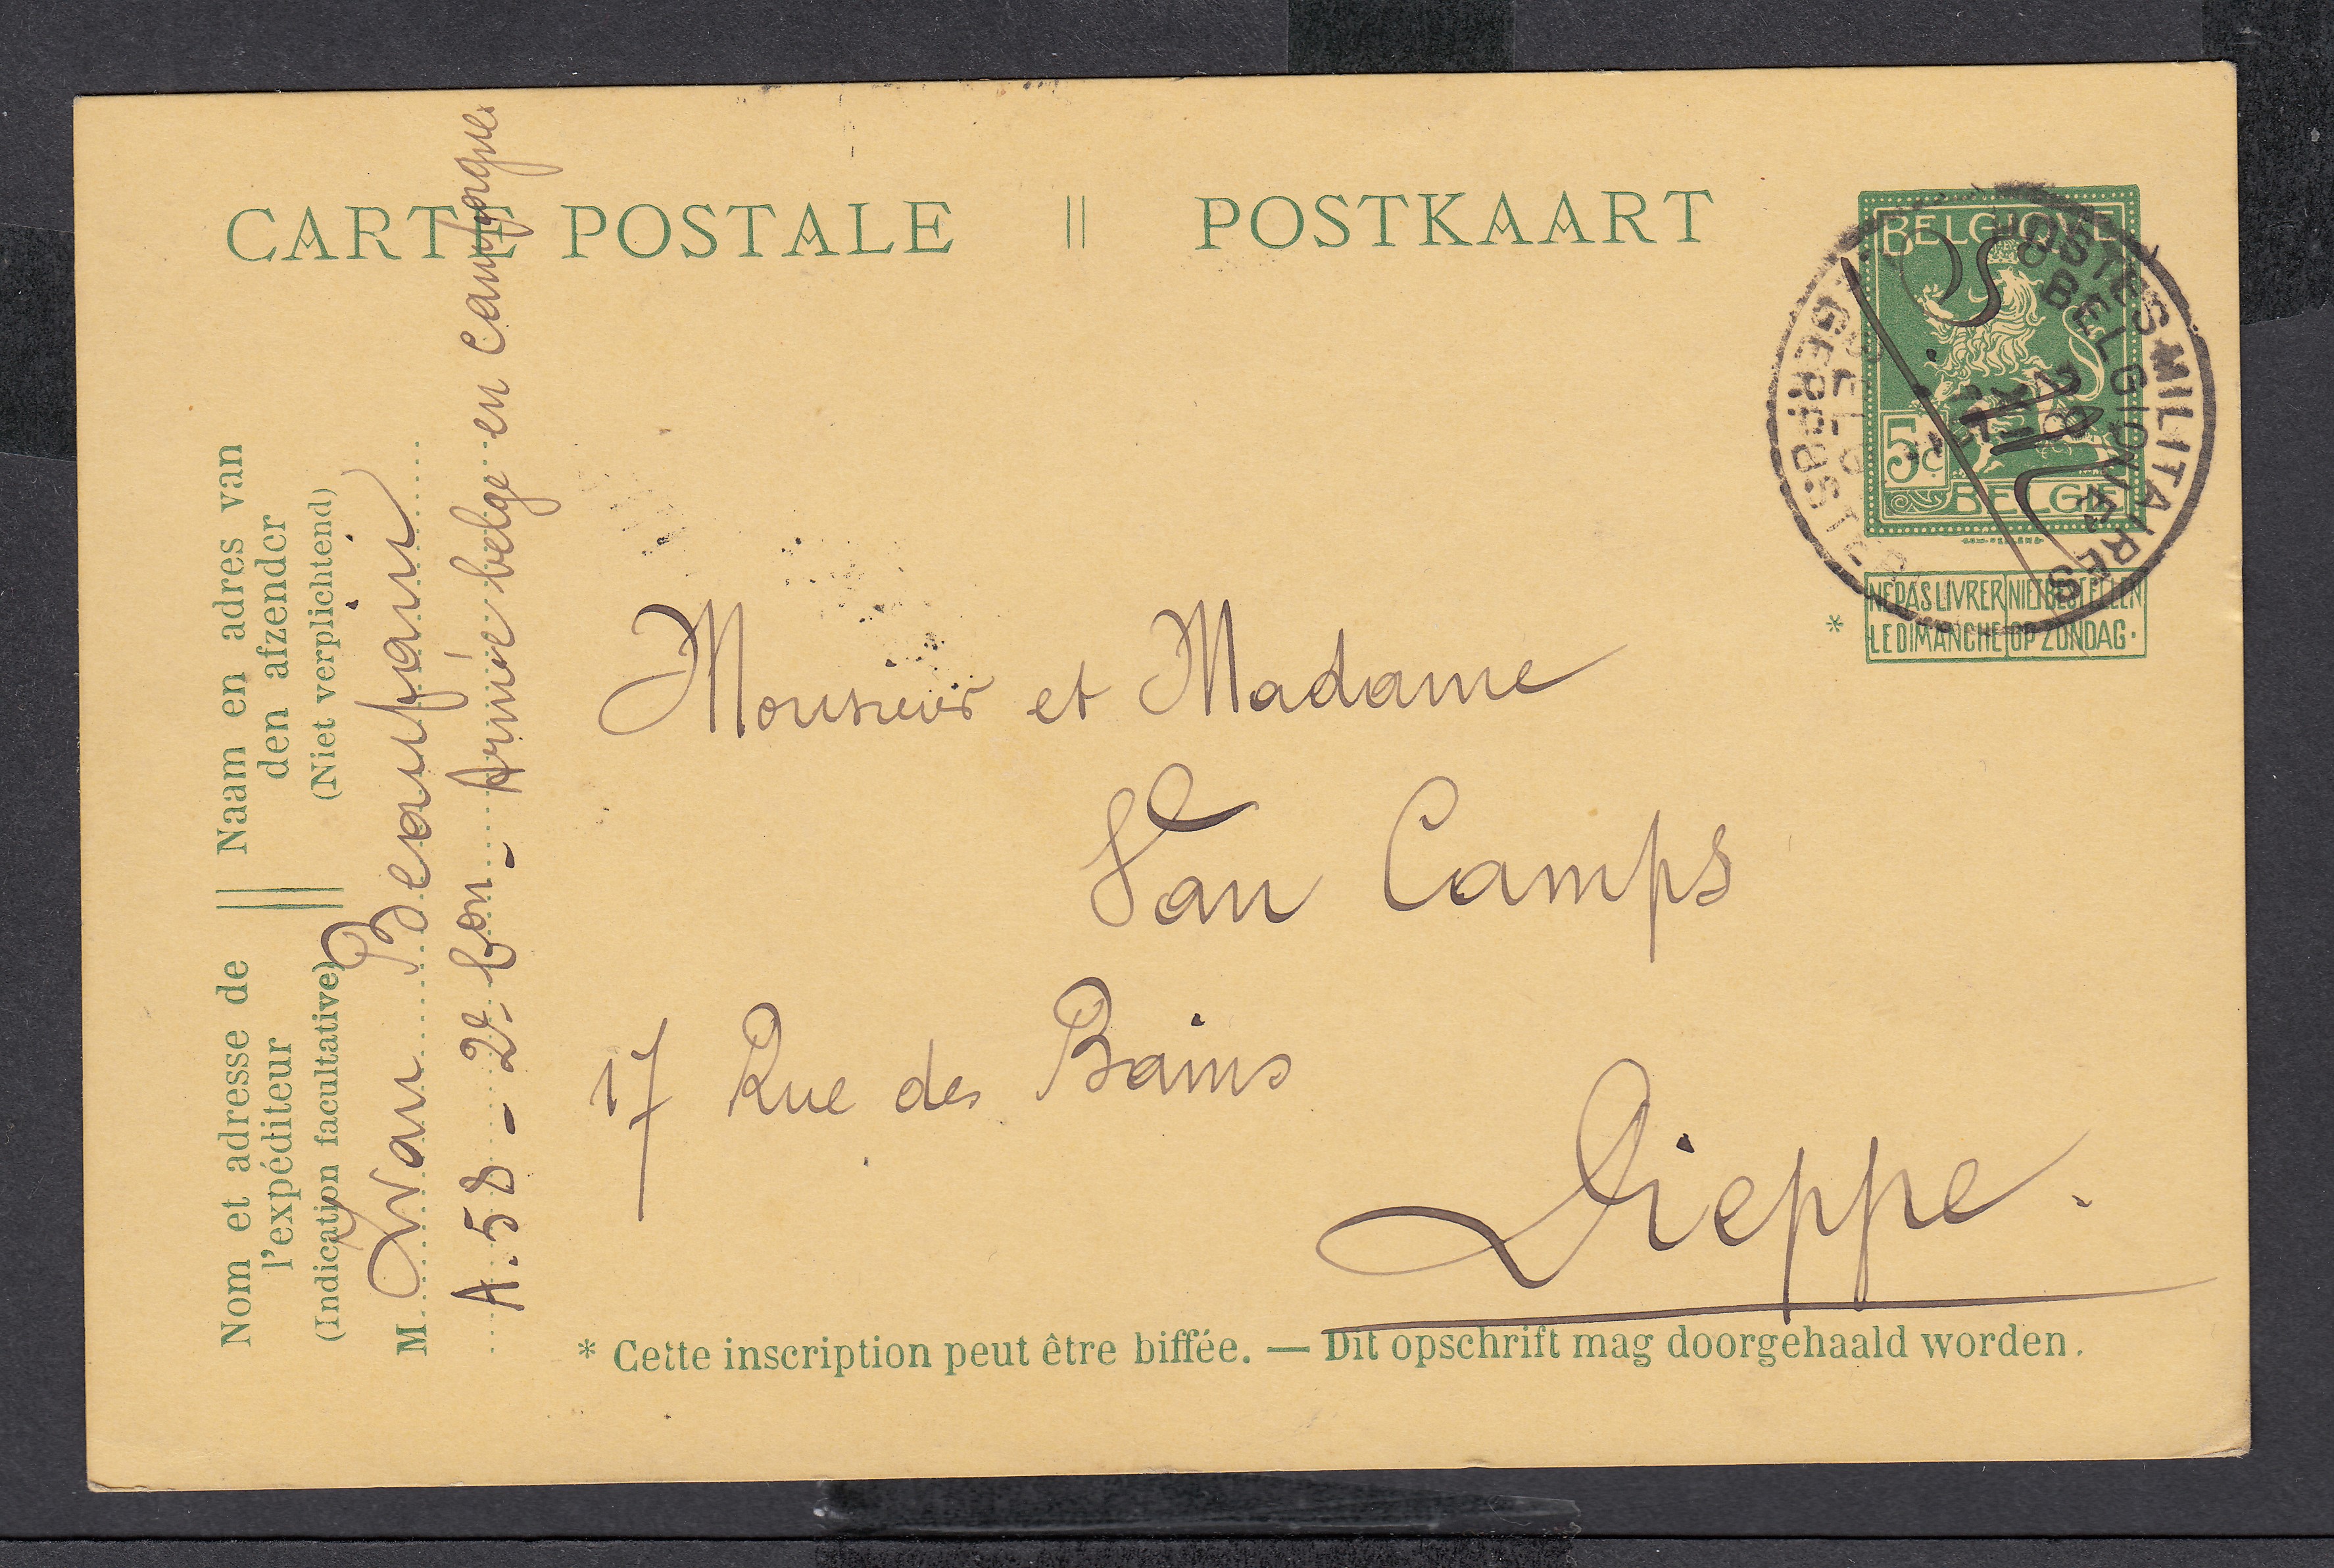 CARTE POSTALE || POSTKAART
BELGIQUE
5 c.
BELGIË
POSTES MILITAIRES
BELGIQUE
NE PAS LIVRER LE DIMANCHE
NIET BESTELLEN OP ZONDAG.
*
Nom et adresse de l'expéditeur
(Indication facultative)
Naam en adres van den afzender
(Niet verplichtend)
M. Ivan Beaufain
A. 58 - 2e - Armée belge en campagne
Monsieur et Madame
Van Camps
17 Rue des Bains
Dieppe.
* Cette inscription peut être biffée. — Dit opschrift mag doorgehaald worden.